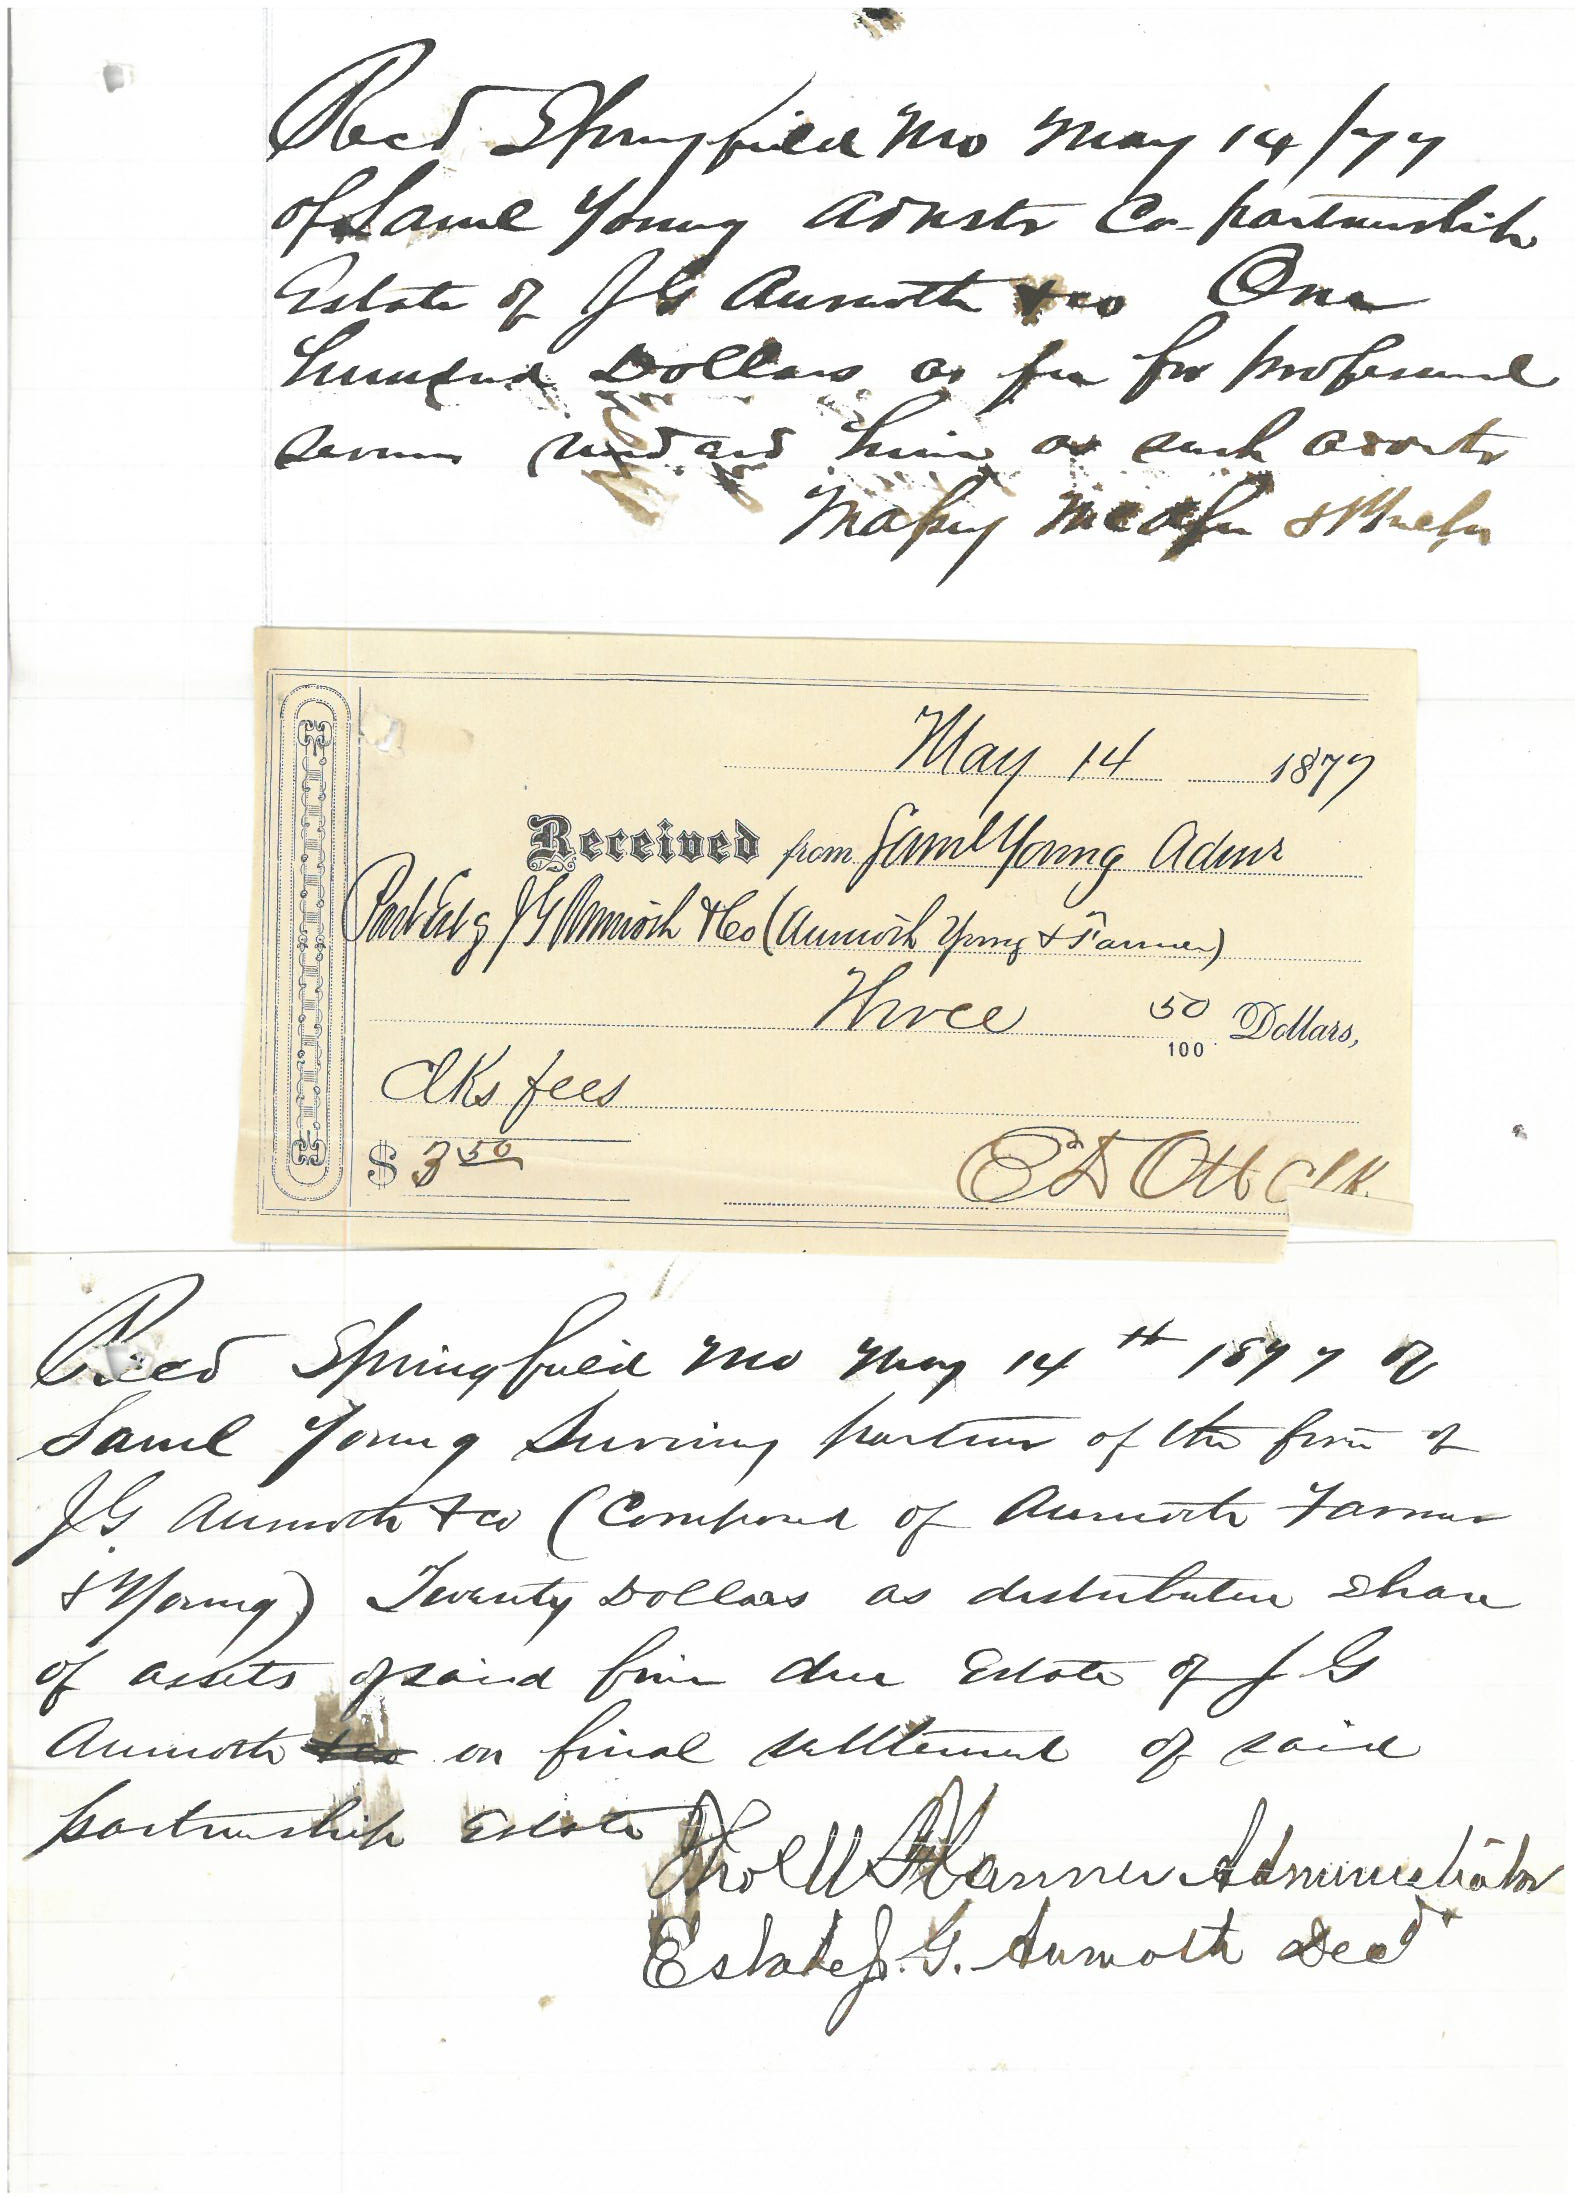 Recd Springfield Mo May 14/77
of Saml Young Admstr Co-partnership
Estate of JG Aumoth &co One
hundred Dollars as fee for professional
services rendered him as such admtr
May 14 1877
Received from Saml Young Admr
Part Est of JG Aumoth & Co (Aumoth Young & Farmer)
Three 50/100 Dollars,
Clks fees
$ 3 50
E D Ott Clk.
Recd Springfield Mo May 14th 1877 of
Saml Young Surviving partner of the firm of
JG Aumoth & co (Composed of Aumoth Farmer
& Young) Twenty Dollars as distributive Share
of assets of said firm due Estate of J G
Aumoth on final settlement of said
partnership Estate
Administrator
Estate J. G. Aumoth Decd